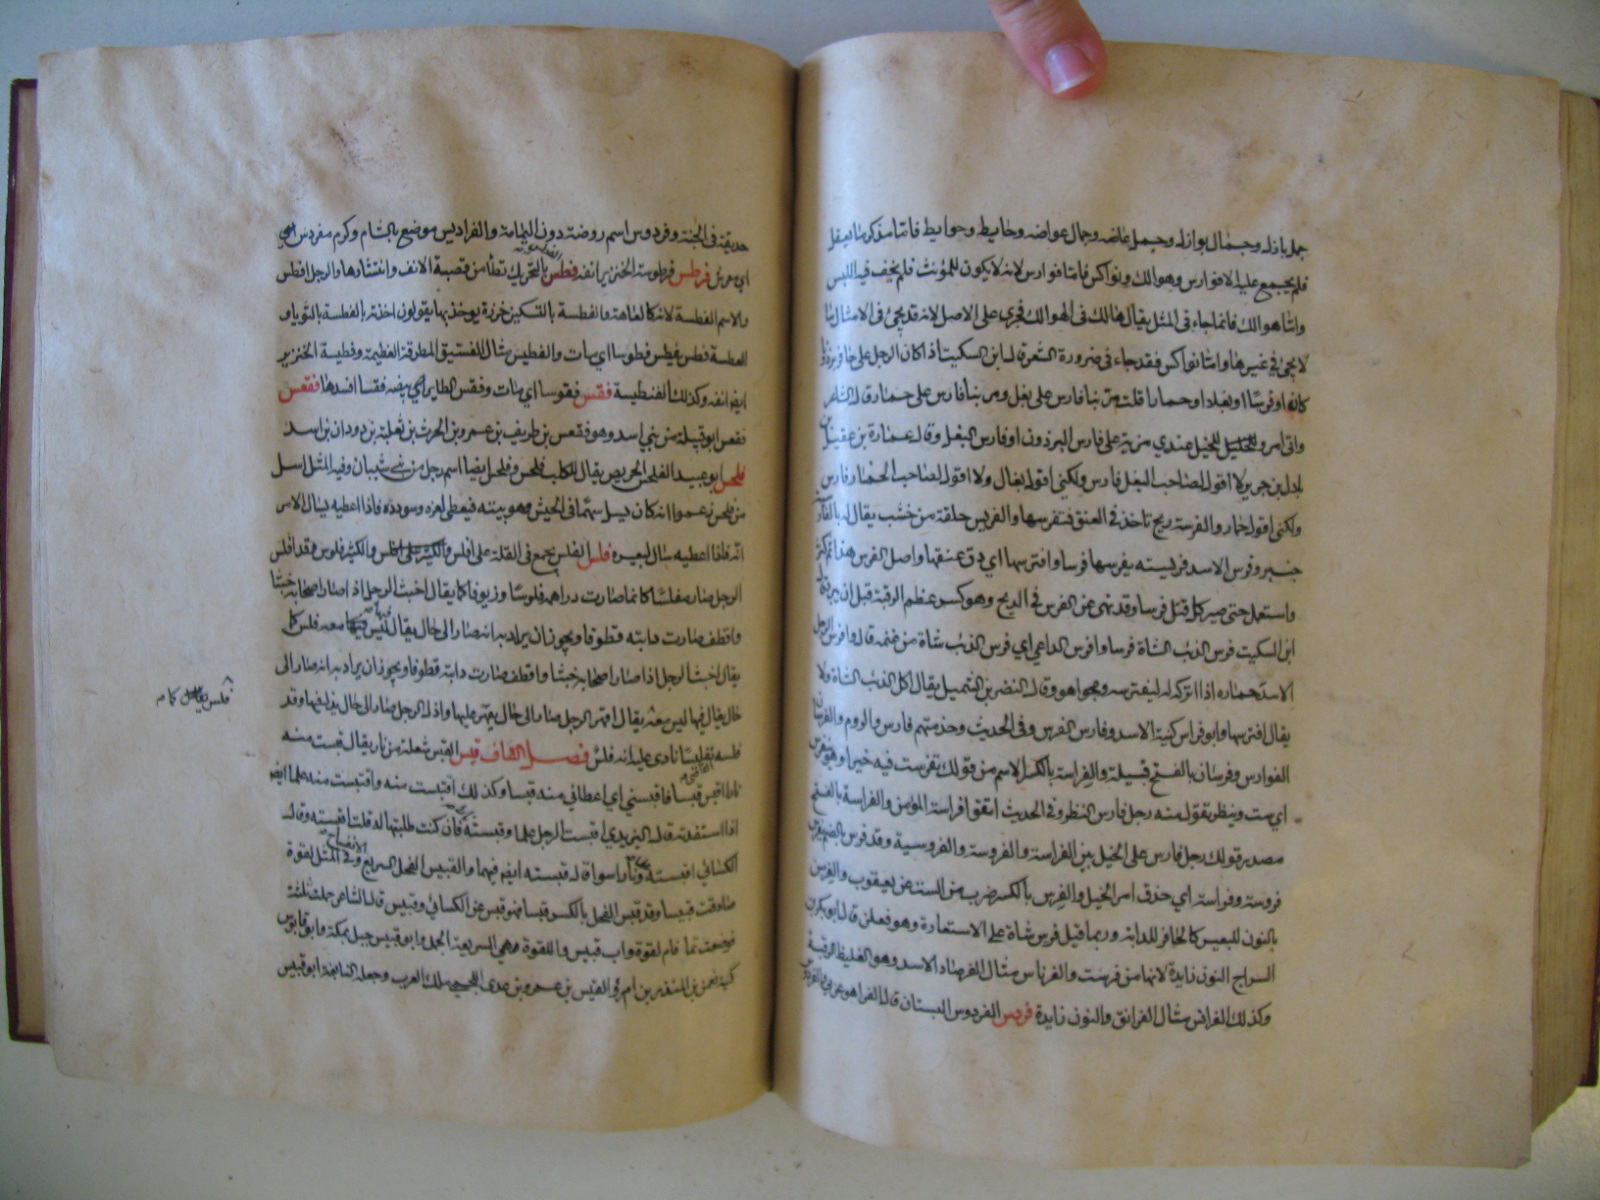 جمل بازل وجمال بوازل وجمل عاضه وجمال عواضه وحايط وحوايط فاما مذكر ما يعقل
فلم يجمع عليه الا فوارس وهوالك ونواكس فاما فوارس لانه لا يكون للمؤنث فلم يخف فيه اللبس
واما هوالك فانما جاء في المثل يقال هالك في الهوالك فجرى على الاصل لانه قد يجئ في الامثال ما
لا يجئ في غيرها واما نواكس فقد جاء في ضرورة الشعر قال ابن السكيت اذا كان الرجل على حافر برذونا
كان او فرسا او بغلا او حمارا قلت مر بنا فارس على بغل ومر بنا فارس على حمار قال الشاعر
واني امرو للخيل عندي مزية على فارس البرذون او فارس البغل وقال عمارة بن عقيل بن
بلال بن جرير لا اقول لصاحب البغل فارس ولكني اقول بغال ولا اقول لصاحب الحمار فارس
ولكني اقول حمار والفرسة ريح تاخذ في العنق فتفرسها والفريس حلقة من خشب يقال لها بالفارسية
جنبر وفرس الاسد فريسته يفرسها فرسا وافترسها اي دق عنقها واصل الفرس هذا ثم كثر
واستعمل حتى صير كل قتل فرسا وقد نهى عن الفرس في الذبح وهو كسر عظم الرقبة قبل ان يبرد قال
ابن السكيت فرس الذئب الشاة فرسا وافرس الداعي اي فرس الذئب شاة من غنمه قال وافرس الرجل
الاسد حماره اذا تركه له ليفترسه وينجو هو وقال النضر بن الشميل يقال اكل الذئب الشاة ولا
يقال افترسها وابو فراس كنية الاسد وفارس الفرس وفي الحديث وخدمتهم فارس والروم والفرسان
الفوارس وفرسان بالفتح قبيلة والفراسة بالكسر الاسم من قولك تفرست فيه خيرا وهو يتفرس
اي يتثبت وينظر تقول منه رجل فارس النظر وفي الحديث اتقوا فراسة المؤمن والفراسة بالفتح
مصدر قولك رجل فارس على الخيل بين الفراسة والفروسة والفروسية وقد فرس بالضم يفرس
فروسة وفراسة اي حذق امر الخيل والفرس بالكسر ضرب من النبت عن يعقوب والفرسن
بالنون للبعير كالحافر للدابة وربما قيل فرسن شاة على الاستعارة وهو فعلن قال ابو بكر بن
السراج النون زايدة لانها من فرست والفرناس مثال الفرصاد الاسد وهو الغليظ الرقبة
وكذلك الفرانس مثال الفرانق والنون زايدة فردس الفردوس البستان قال الفراء هو عربي والفردوس
حديقة في الجنة وفردوس اسم روضة دون اليمامة والفراديس موضع بالشام وكرم مفردس
اي معرش فرطس فرطوسة الخنزير انفه فطس الفطس بالتحريك تطامن قصبة الانف وانتشارها والرجل افطس
والاسم الفطسة لانه كالعاهة والفطسة بالتسكين خرزة يوخذ بها يقولون اخذته بالفطسة بالثوبا و
العطسة فطس يفطس فطوسا اي مات والفطيس مثال الفسيق المطرقة العظيمة وفطيسة الخنزير
ايضا انفه وكذلك الفنطيسة فقس فقوسا اي مات وفقس الطاير بيضه فقسا افسدها فقعس
فقعس ابو قبيلة من بني اسد وهو فقعس بن طريف بن عمرو بن الحرث بن ثعلبة بن دودان بن اسد
فلحس ابو عبيد الفلحس الحريص يقال للكلب فلحس وفلحس ايضا اسم رجل من بني شيبان وفيه المثل اسل
من فلحس زعموا انه كان يسل سهما في الجيش وهو بيته فيعطى لعزه وسودده فاذا اعطيه يسال لامرا
ته فاذا اعطيه سال لبعيره فلس الفلس يجمع في القلة على افلس والكثير فلوس وقد افلس
الرجل صار مفلسا كانما صارت دراهمه فلوسا وزيوفا كما يقال اخبث الرجل اذا صار اصحابه خبثا
واقطف صارت دابته قطوفا ويجوز ان يراد به انه صار الى حال يقال ليس فيها معه فلس كما
يقال اخبث الرجل اذا صار اصحابه خبثا واقطف صارت دابته قطوفا ويجوز ان يراد به انه صار الى
حال يقال فيها ليس معه يقال اقهر الرجل صار الى حال يقهر عليها واذل الرجل صار الى حال يذل فيها وقد
فلسه تفليسا نادى عليه انه فلس فصل القاف قبس القبس شعلة من نار يقال قبست منه
نارا اقبس قبسا فاقبسني اي اعطاني منه قبسا وكذلك اقتبست منه واقتبست منه علما ايضا
اذا استفدته قال اليزيدي اقبست الرجل علما وقبسته نارا فان كنت طلبتها له قلت اقبسته وقال
الكسائي اقبسته ونارا سواء قال قبسته ايضا فيهما والقبيس الفحل السريع الالقاح وفي المثل لقوة
صادفت قبيسا وقد قبس الفحل بالكسر قبسا فهو قبس عن الكسائي وقبيس قال الشاعر حملت ثلثة
فوضعت تما فام لقوة واب قبيس واللقوة هي السريعة الحمل وابو قبيس جبل بمكة وابو قابوس
كنية نعمن بن المنذر بن امرؤ القيس بن عمرو بن عدي اللخمي ملك العرب وجعله النابغة ابو قبيس
فلس كما